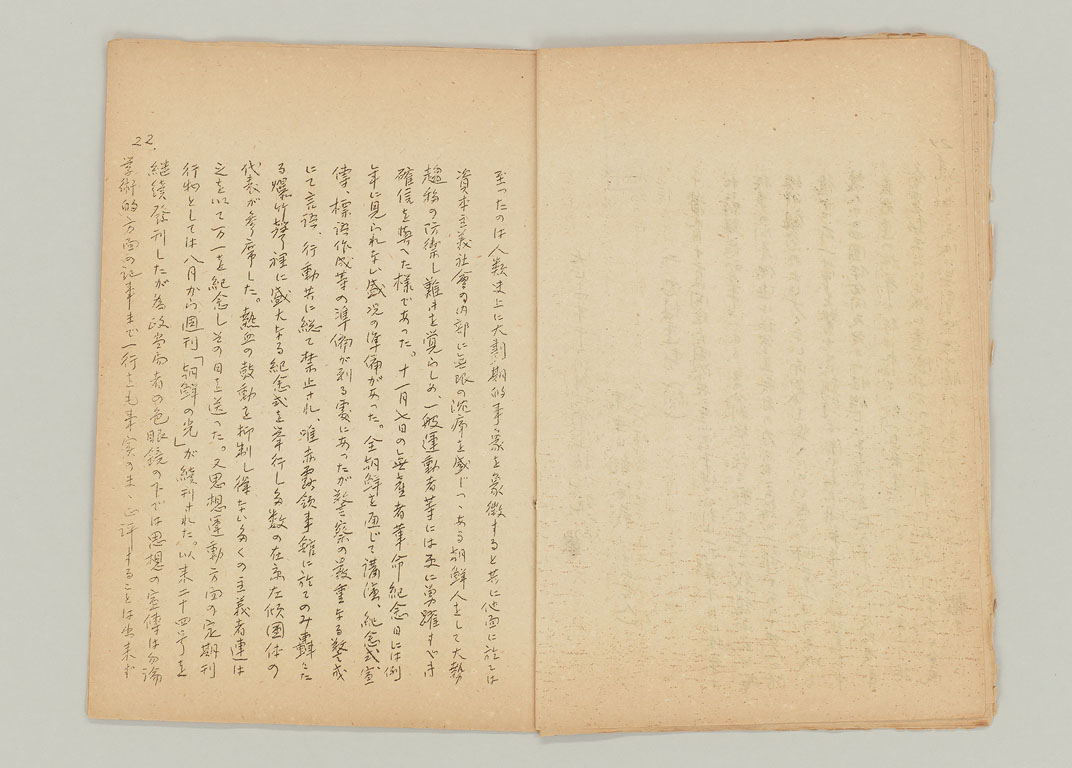 至ったのは人類史上に大劃期的事象を象徴すると共に他面に於ては
資本主義社會の内部に無限の沈席を感じつゝある朝鮮人をして大勢
趨移の防禦し難きを覚らしめ、一般運動者等には更に勇躍すべき
確信を與へた様であった。十一月七日の無産者革命紀念日には例
年に見られない盛況の準備があった。全朝鮮を通じて講演、紀念式宣
傳、標語作成等の準備が到る處にあったが警察の嚴重なる警戒
にて言語、行動共に総て禁止され、唯赤露領事館に於てのみ轟々た
る爆竹聲裡に盛大なる紀念式を挙行し多数の在京左傾團体の
代表が参席した。熱血の鼓動を抑制し得ない多くの主義者連は
之を以て万一を紀念しその日を送った。又思想運動方面の定期刊
行物としては八月から週刊「朝鮮の光」が續刊された。以来二十四号を
継続發刊したが為政当局者の色眼鏡の下では思想の宣傳は勿論
学術的方面の記事まで一行をも事実のまゝ正評することは出来ず
22.